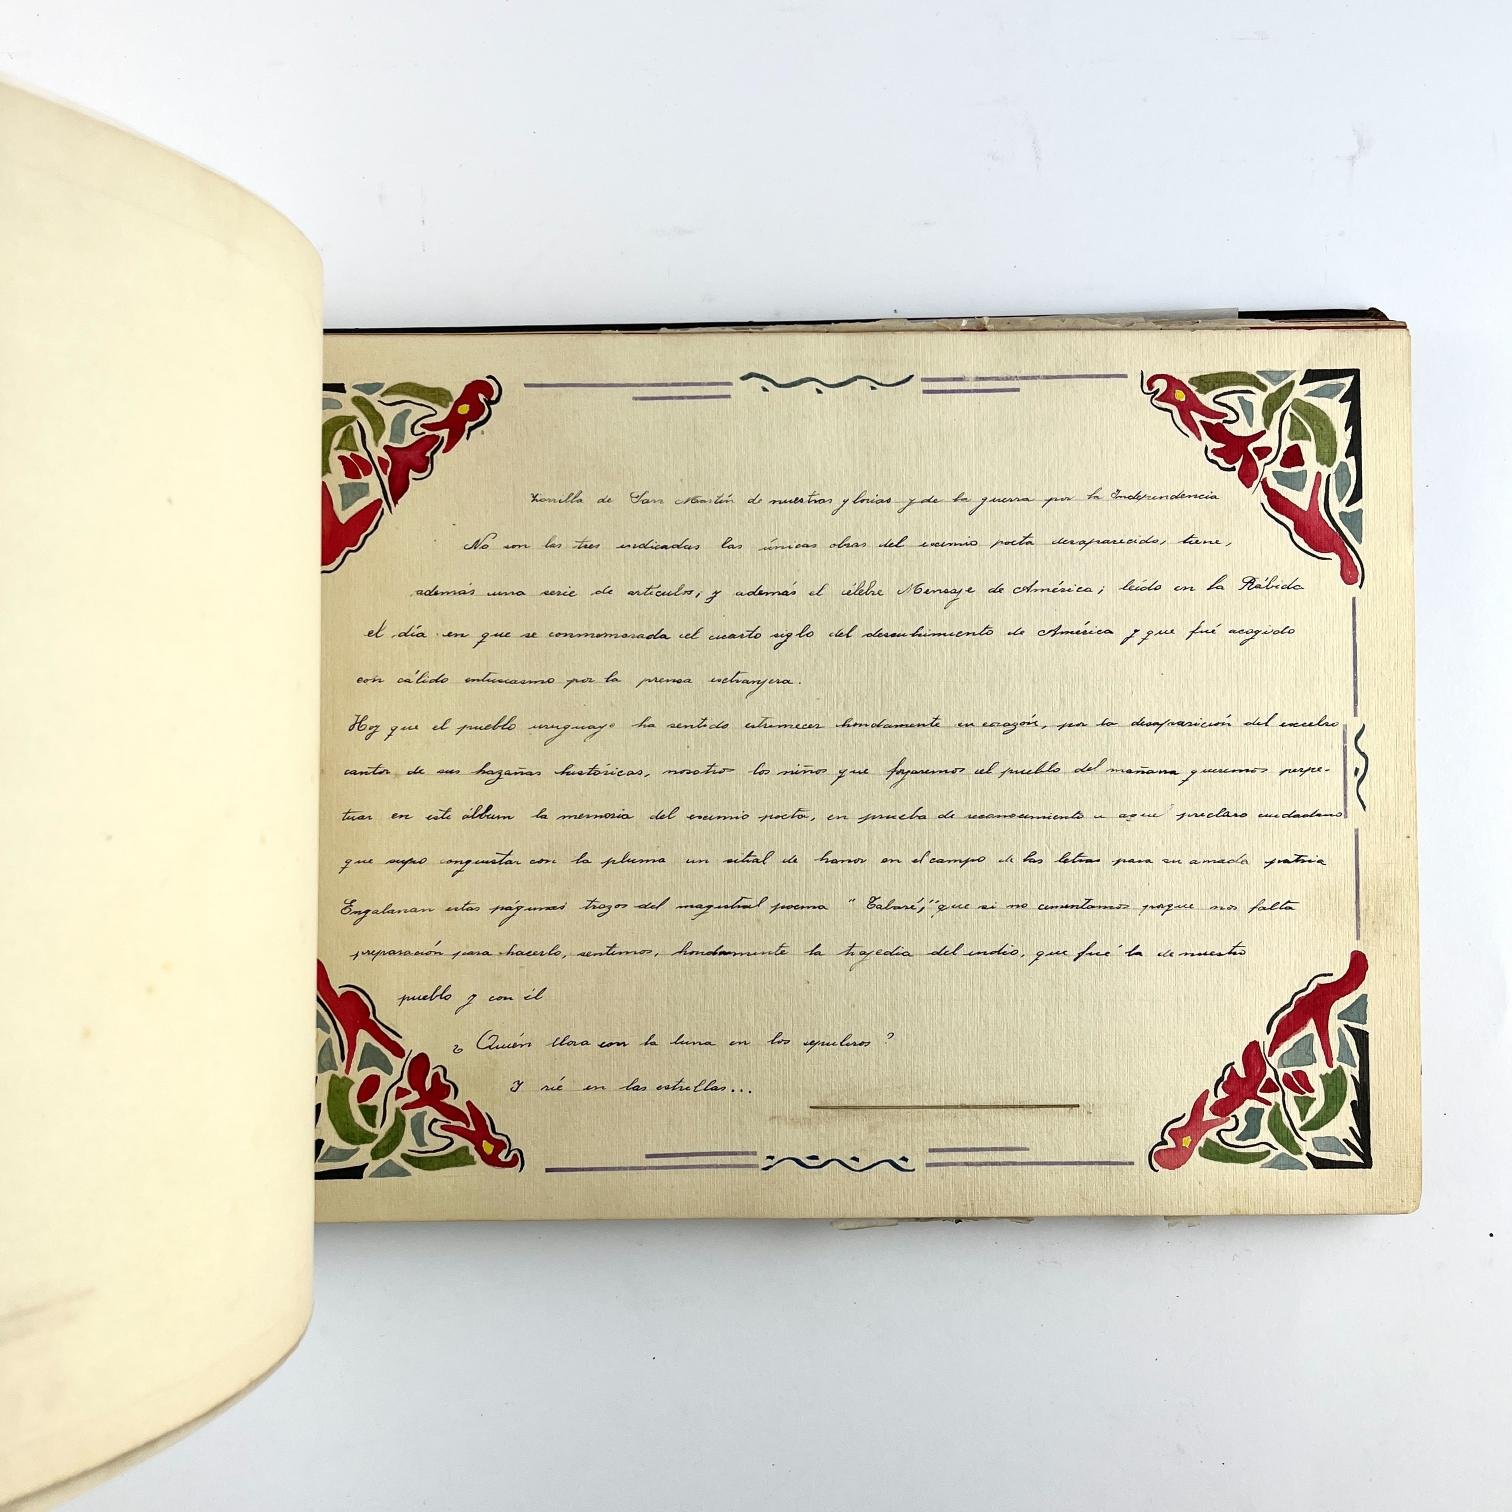 Zorrilla de San Martín de nuestras glorias y de la guerra por la Independencia
No son las tres indicadas las únicas obras del eximio poeta desaparecido, tiene,
además una serie de artículos, y además el célebre Mensaje de América; leído en la Rábida
el día en que se conmemoraba el cuarto siglo del descubrimiento de América y que fué acogido
con cálido entusiasmo por la prensa extranjera.
Hoy que el pueblo uruguayo ha sentido estremecer hondamente su corazón, por la desaparición del excelso
cantor de sus hazañas históricas, nosotros los niños que forjaremos el pueblo del mañana queremos perpe-
tuar en este álbum la memoria del eximio poeta, en prueba de reconocimiento a aquel preclaro ciudadano
que supo conquistar con la pluma un sitial de honor en el campo de las letras para su amada patria
Engalanan estas páginas trozos del magistral poema "Tabaré," que si no comentamos porque nos falta
preparación para hacerlo, sentimos, hondamente la tragedia del indio, que fué la de nuestro
pueblo y con él
¿Quién llora con la luna en los sepulcros?
Y rié en las estrellas...